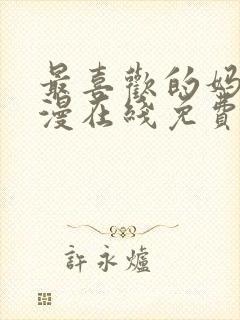 最喜歡的妈
漫在綫免費
許永爐